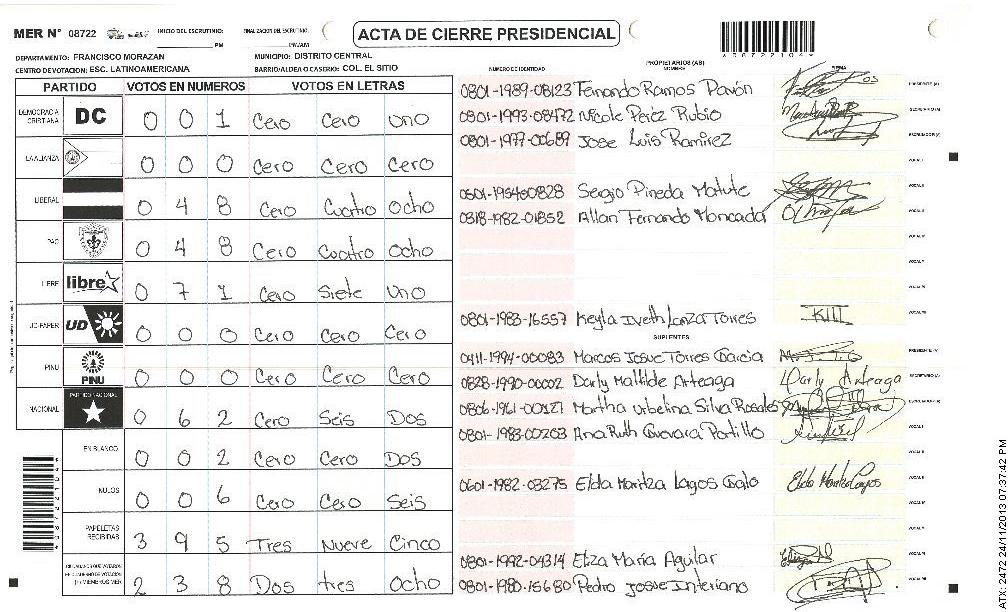 MER N° 08722 INICIO DEL ESCRUTINIO: PM FINALIZACION DEL ESCRUTINIO: PM/AM ACTA DE CIERRE PRESIDENCIAL
DEPARTAMENTO: FRANCISCO MORAZAN MUNICIPIO: DISTRITO CENTRAL
CENTRO DE VOTACION: ESC. LATINOAMERICANA BARRIO/ALDEA O CASERIO: COL. EL SITIO
PARTIDO VOTOS EN NUMEROS VOTOS EN LETRAS
DEMOCRACIA CRISTIANA DC 0 0 1 Cero Cero Uno
LA ALIANZA 0 0 0 Cero Cero Cero
LIBERAL 0 4 8 Cero Cuatro Ocho
PAC 0 4 8 Cero Cuatro Ocho
LIBRE libre 0 7 1 Cero Siete Uno
UD-FAPER UD 0 0 0 Cero Cero Cero
PINU PINU 0 0 0 Cero Cero Cero
NACIONAL PARTIDO NACIONAL 0 6 2 Cero Seis Dos
EN BLANCO 0 0 2 Cero Cero Dos
NULOS 0 0 6 Cero Cero Seis
PAPELETAS RECIBIDAS 3 9 5 Tres Nueve Cinco
CIUDADANOS QUE VOTARON 2 3 8 Dos tres Ocho
NUMERO DE IDENTIDAD PROPIETARIOS (AS) NOMBRE FIRMA
0801-1989-08123 Fernando Ramos Pavón PRESIDENTE (A)
0801-1993-08472 Nicole Peréz Rubio SECRETARIO (A)
0801-1977-00689 Jose Luis Ramirez ESCRUTADOR (A)
VOCAL I
Sergio Pineda Matute VOCAL II
0318-1982-01852 Allan Fernando Moncada
0801-1983-16557 Keyla Iveth Lanza Torres KIII
SUPLENTES
0411-1994-00083 Marcos Josue Torres Garcia PRESIDENTE (A)
0828-1990-00002 Darly Mathilde Arteaga Darly Arteaga SECRETARIO (A)
0806-1961-00127 Martha Urbelina Silva Rosales ESCRUTADOR (A)
0801-1983-00263 Ana Ruth Guevara Portillo VOCAL I
0601-1982-03275 Elda Maritza Lagos
0801-1992-04314 Elza María Aguilar
0801-1980-15680 Pedro Josue Interiano
ATX-2472 24/11/2013 07:37:42 PM